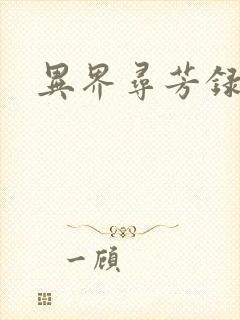 異界尋芳録
一顧